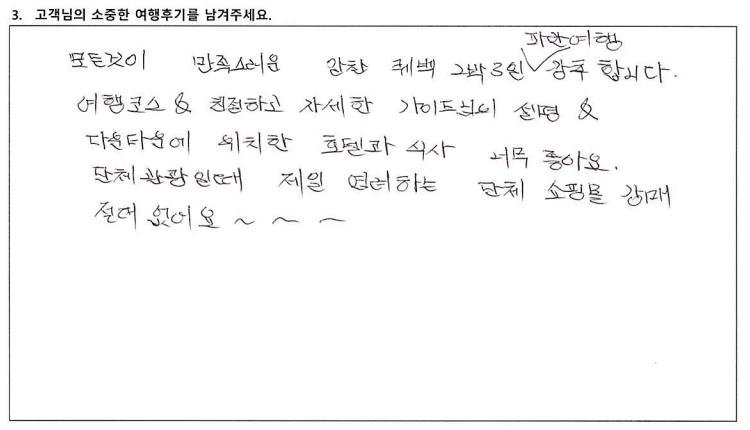 3. 고객님의 소중한 여행후기를 남겨주세요.
파란여행
모든것이 만족스러운 알찬 퀘벡 2박3일 ✓ 강추 합니다.
여행코스 & 친절하고 자세한 가이드님의 설명 &
다운타운에 위치한 호텔과 식사 너무 좋아요.
단체관광일때 제일 염려하는 단체 쇼핑몰 강매
절대 없어요 ~ ~ ~